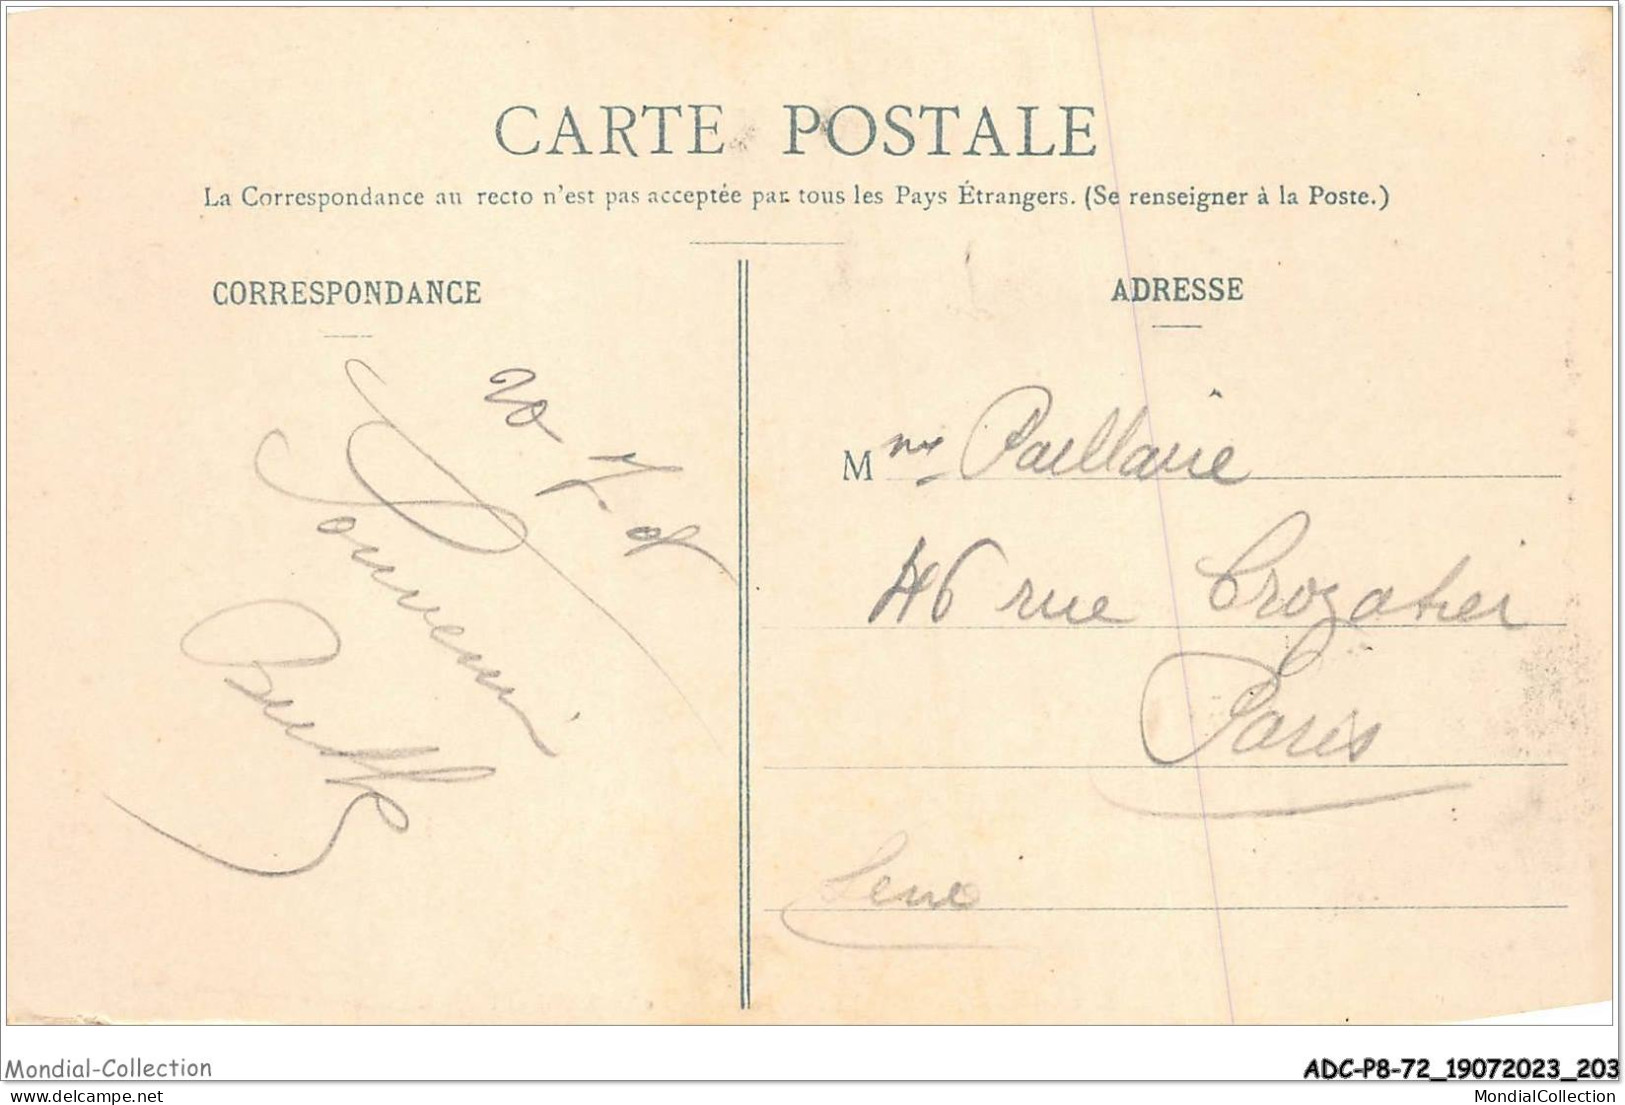 CARTE POSTALE
La Correspondance au recto n'est pas acceptée par tous les Pays Étrangers. (Se renseigner à la Poste.)
CORRESPONDANCE
ADRESSE
20-7-
Souvenir
Mme Paillaire
46 rue Crozatier
Paris
Seine
Mondial-Collection
ADC-P8-72_19072023_203
www.delcampe.net
MondialCollection